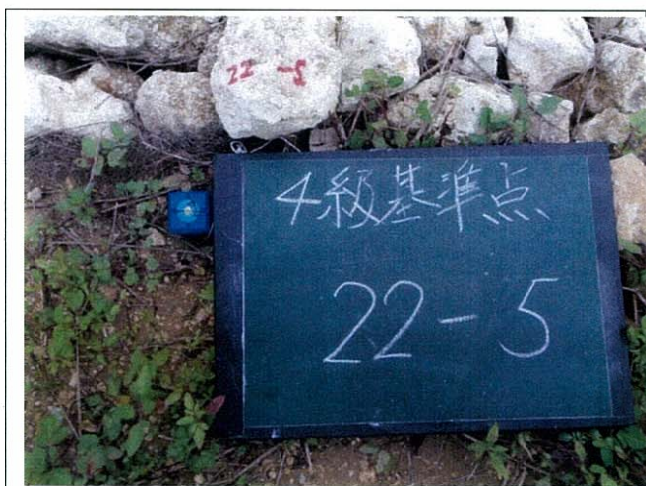 22-5
4級基準点
22-5